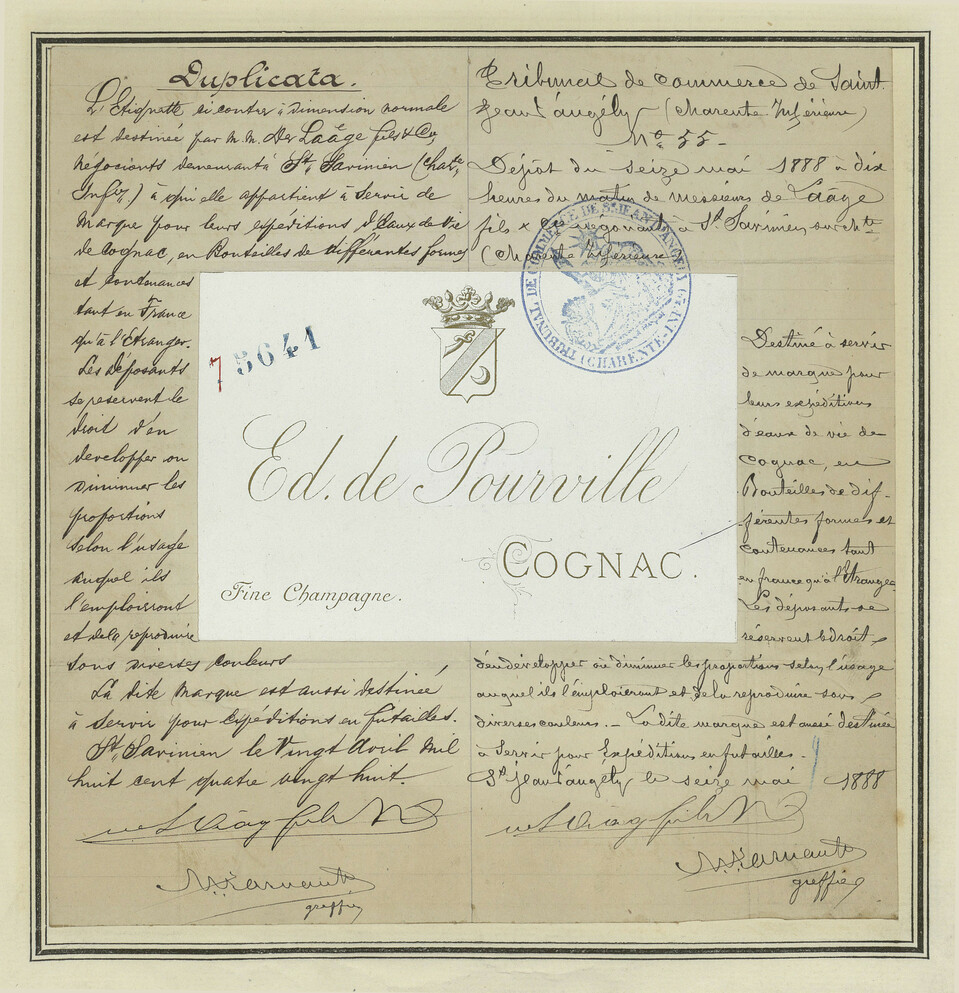 Duplicata.
L'Etiquette ci contre à dimension normale
est destinée par M.M. Des Laâge fils & Cie,
négociants demeurant à St Savinien (Chate
Infre.) à qui elle appartient à servir de
Marque pour leurs expéditions d'Eaux de Vie
de Cognac, en Bouteilles de différentes formes
et contenances
tant en France
qu'à l'Etranger.
Les Déposants
se reservent le
droit d'en
developper ou
Diminuer les
proportions
selon l'usage
auquel ils
l'emploiront
et de la reproduire
sous diverses couleurs
La dite Marque est aussi destinée
à servir pour Expeditions en futailles.
St Savinien le Vingt Avril Mil
huit cent quatre vingt huit.
greffier
Tribunal de Commerce de Saint
Jean d'angély (Charente Inférieure)
No 55-
Dépôt du seize mai 1888 à dix
heures du matin de messieurs de Laâge
fils & Cie négociants à St Savinien sur Chte
(Charente Inférieure)
TRIBUNAL DE COMMERCE DE St JEAN D'ANGELY (CHARENTE-INFre)
75641
Ed. de Pourville
COGNAC.
Fine Champagne.
Destiné à servir
de marque pour
leurs expéditions
d'eaux de vie de
Cognac, en
Bouteilles de dif-
férentes formes et
contenances tant
en france qu'à l'Etranger
Les déposants se
réservent le droit
d'en développer ou diminuer les proportions selon l'usage
auquel ils l'emploieront et de la reproduire sous
diverses couleurs. - La dite marque est aussi destinée
à Servir pour Expéditions en futailles.
St Jean d'angély le seize mai 1888
greffier